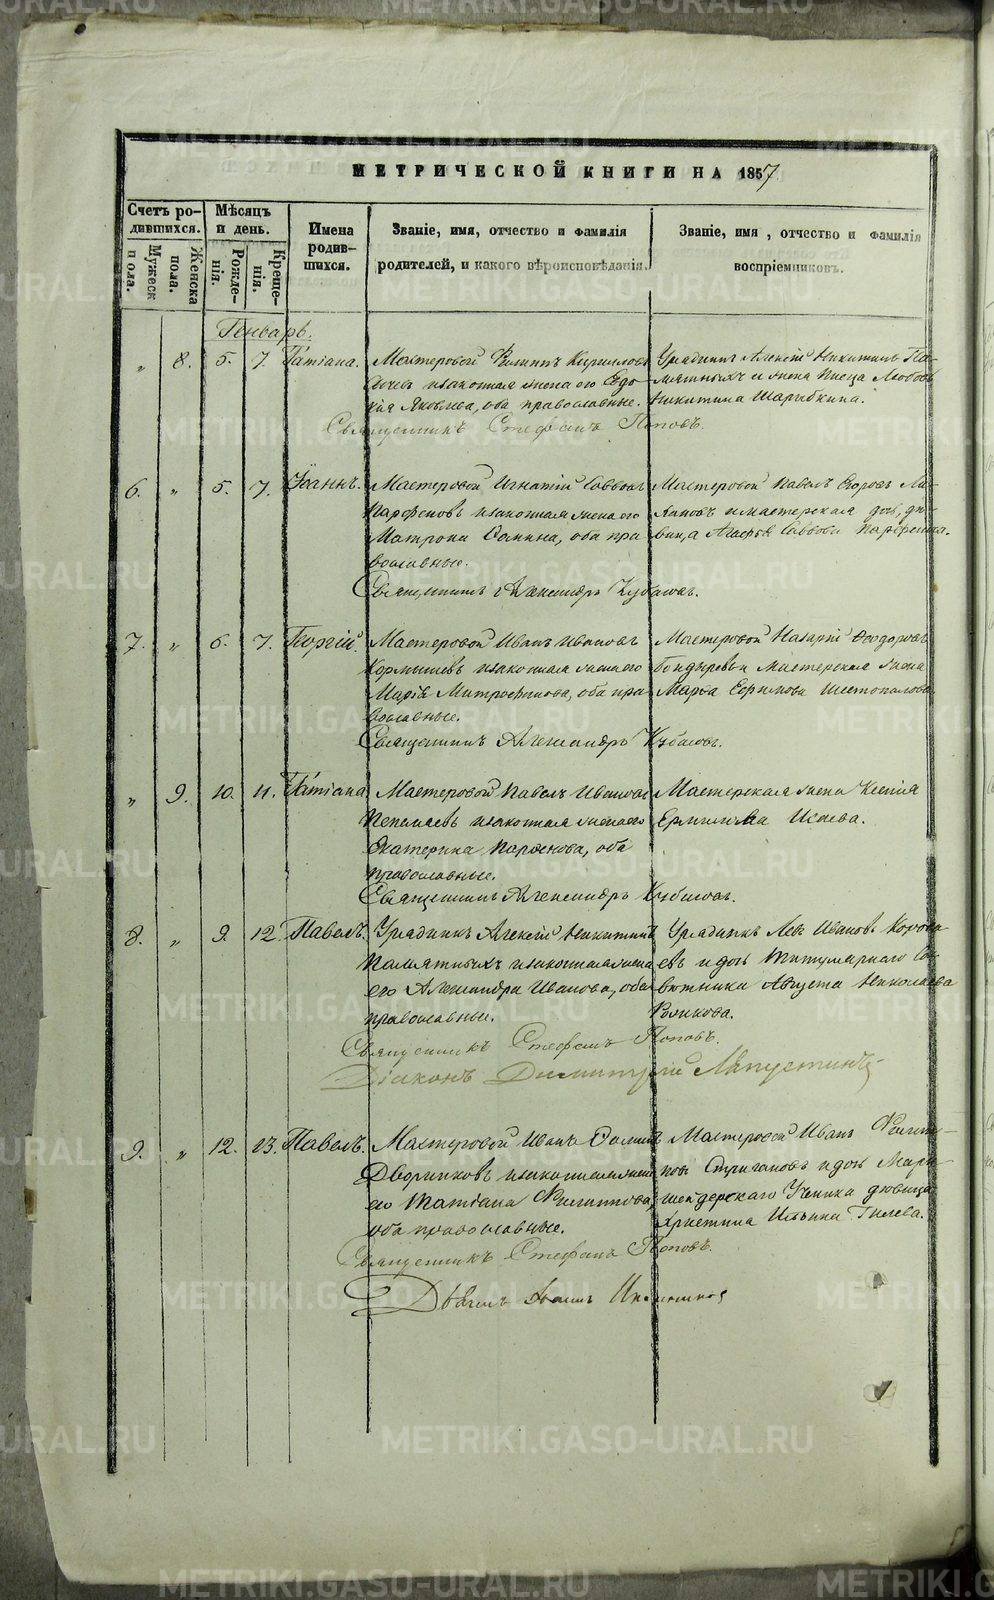 МЕТРИЧЕСКОЙ КНИГИ НА 1857
Счетъ родившихся.
Мужеска пола.
Женска пола.
Мѣсяцъ и день.
Рожденія.
Крещенія.
Имена родившихся.
Званіе, имя, отчество и фамилія
родителей, и какого вѣроисповѣданія.
Званіе, имя, отчество и фамилія
воспріемниковъ.
Генварь.
„ 8. 5. 7. Татіана.
Мастеровой Филиппъ Кирилловъ
и законная жена его Евдо-
кія Яковлева, оба православные.
Урядникъ Алексій Никитинъ Па-
мятныхъ и жена писца Любовь
Никитина Шарыбкина.
Священникъ Стефанъ Поповъ.
6. „ 5. 7. Іоаннъ.
Мастеровой Игнатій Саввовъ
Парфеновъ и законная жена его
Матрона Фомина, оба пра-
вославные.
Мастеровой Павелъ Егоровъ
и мастерская дочь, дѣ-
вица Саввова Парфенова.
Священникъ Александръ
7. „ 6. 7. Георгій.
Мастеровой Иванъ Ивановъ
Кормышевъ и законная жена его
Марія Митрофанова, оба пра-
вославные.
Мастеровой Назарій Ѳеодоровъ
Бондыревъ и мастерская жена
Марѳа Ефимова Шестопалова.
Священникъ Александръ
„ 9. 10. 11. Татіана
Мастеровой Павелъ Ивановъ
и законная жена его
Екатерина Парѳенова, оба
православные.
Мастерская жена Ксенія
Ермилова Исаева.
Священникъ Александръ
8. „ 9. 12. Павелъ.
Урядникъ Алексій Никитинъ
Памятныхъ и законная жена
его Александра Иванова, оба
православные.
Урядникъ Левъ Ивановъ
и дочь Титулярнаго Со-
вѣтника Августа Николаева
Священникъ Стефанъ Поповъ.
Діаконъ Димитрій Ляпустинъ
9. „ 12. 13. Павелъ.
Мастеровой Иванъ Фоминъ
Дворниковъ и законная жена
его Татіана Филиппова,
оба православные.
Мастеровой Иванъ Филип-
повъ Стригановъ и дочь Марк-
шейдерскаго Ученика дѣвица
Христина Ильина Гилева.
Священникъ Стефанъ Поповъ.
METRIKI.GASO-URAL.RU